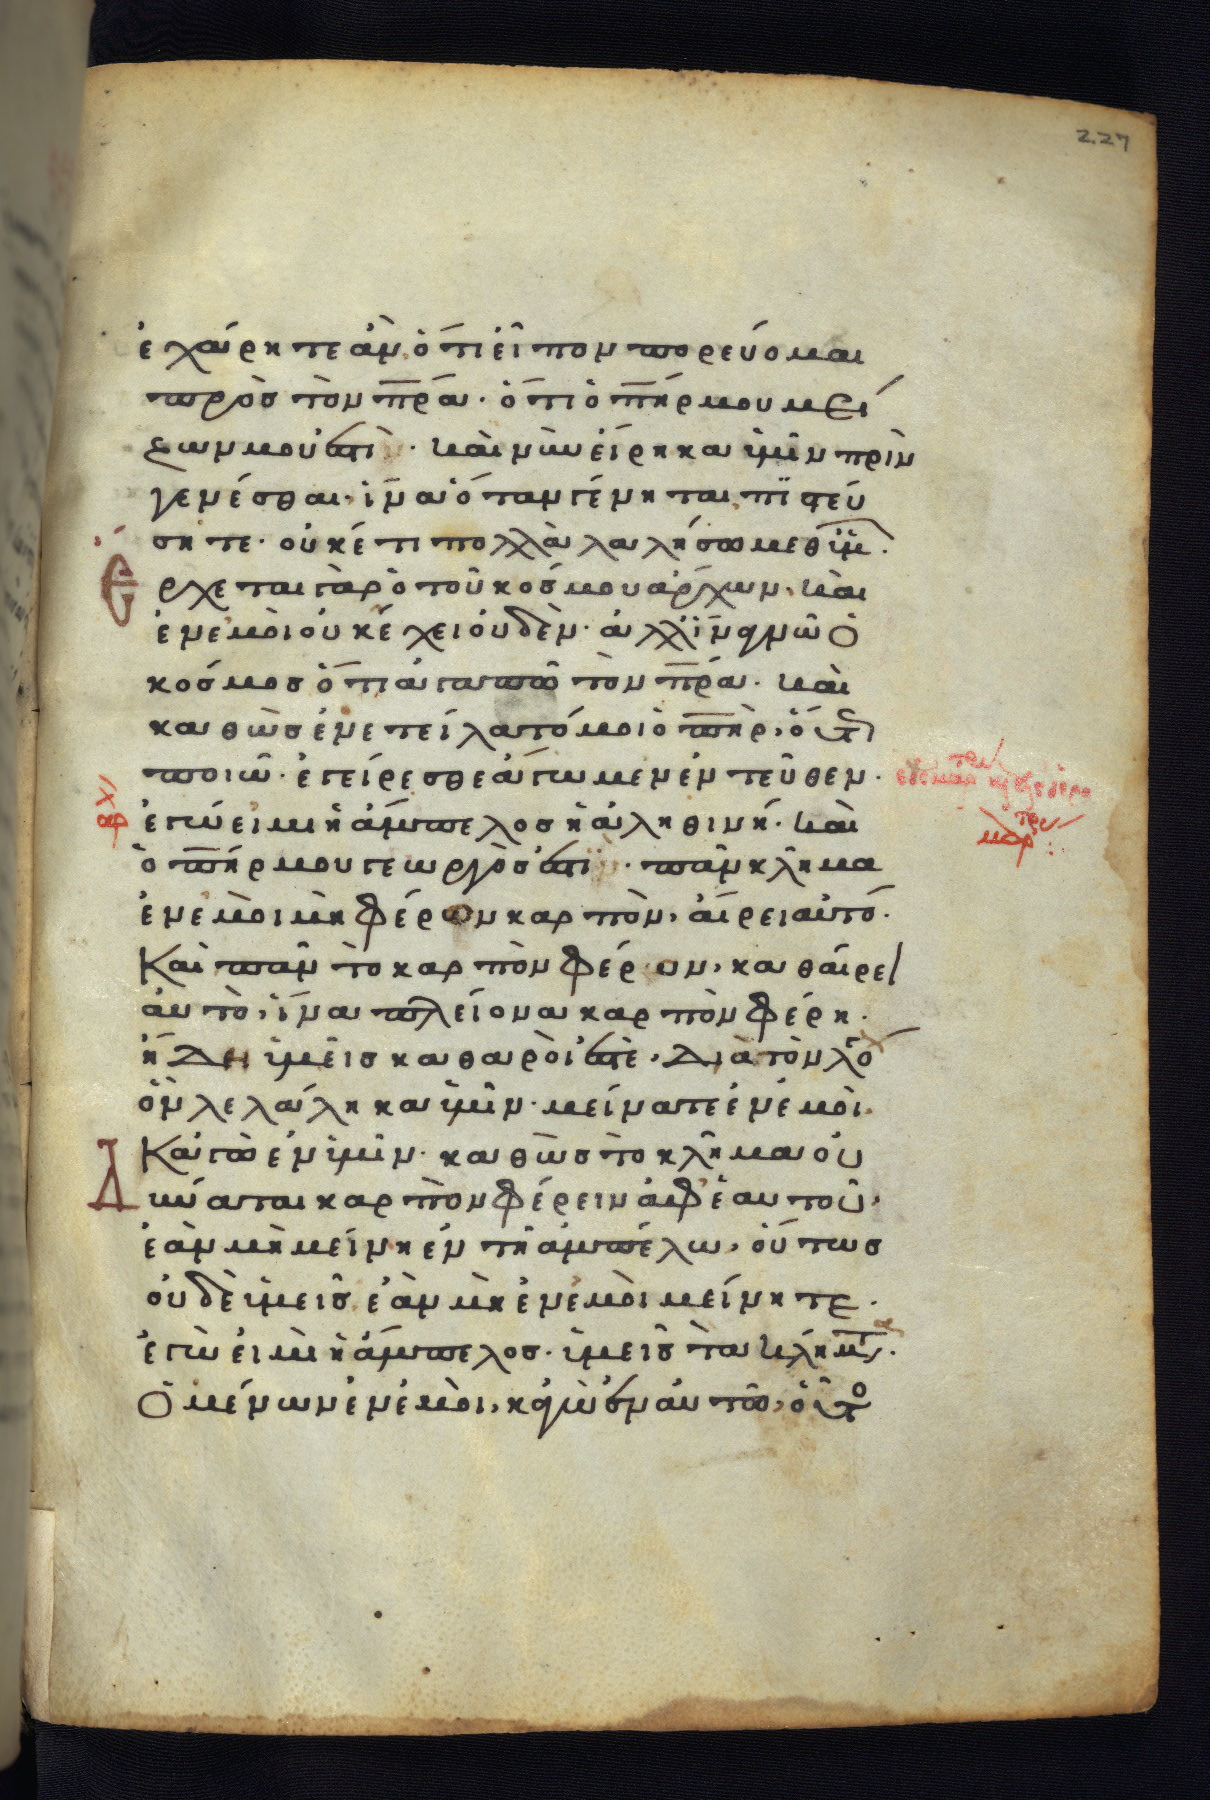 227
ἐχάρητε ἂν ὅτι εἶπον πορεύομαι
πρὸς τὸν πρα· ὅτι ὁ πηρ μου μεί
ζων μου ἐστὶ· καὶ νῦν εἴρηκα ὑμῖν πρὶν
γενέσθαι· ἵνα ὅταν γένηται πιστεύ
σητε· οὐκέτι πολλὰ λαλήσω μεθ ὑμ.
Ερχεται γὰρ ὁ τοῦ κόσμου ἄρχων, καὶ
ἐν ἐμοὶ οὐκ ἔχει οὐδὲν· ἀλλ ἵνα γνῶ ὁ
κόσμος ὅτι ἀγαπῶ τὸν πρα· καὶ
καθὼς ἐνετείλατό μοι ὁ πηρ, οὕτω
ποιῶ· ἐγείρεσθε ἄγωμεν ἐντεῦθεν·
αρχ ἐγώ εἰμι ἡ ἄμπελος ἡ ἀληθινή· καὶ
ὁ πηρ μου γεωργὸς ἐστι· πᾶν κλῆμα
ἐν ἐμοὶ μὴ φέρον καρπὸν, αἴρει αὐτό·
Καὶ πᾶν τὸ καρπὸν φέρον, καθαίρει
αὐτὸ, ἵνα πλείονα καρπὸν φέρη·
ἤδη ὑμεῖς καθαροί ἐστε, διὰ τὸν λό
ὃν λελάληκα ὑμῖν· μείνατε ἐν ἐμοὶ.
Καγὼ ἐν ὑμῖν· καθὼς τὸ κλῆμα οὐ
Δύναται καρπὸν φέρειν ἀφ ἑαυτοῦ,
ἐὰν μὴ μείνη ἐν τῆ ἀμπέλω, οὕτως
οὐδὲ ὑμεῖς ἐὰν μὴ ἐν ἐμοὶ μείνητε·
ἐγὼ εἰμὶ ἡ ἄμπελος· ὑμεῖς τὰ κλήματ.
Ὁ μένων ἐν ἐμοὶ, καγὼ ἐν αὐτῶ, οὗτο